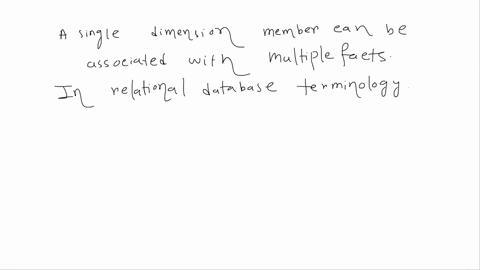 A single dimension member can be
associated with multiple facts.
In relational database terminology.